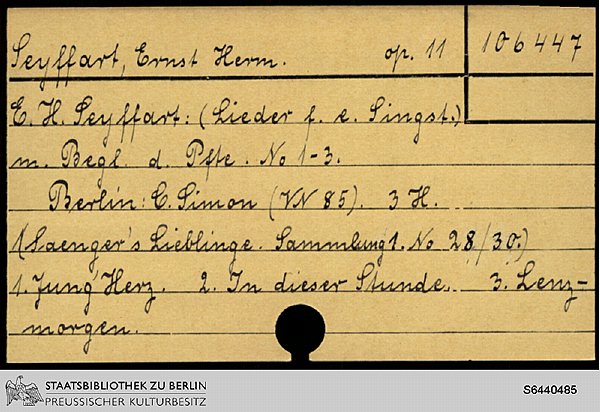 Seyffart, Ernst Herm. op. 11 106447
E. H. Seyffart: (Lieder f. e. Singst.)
m. Begl. d. Pfte. No 1-3.
Berlin: C. Simon (VN 85). 3 H.
(Saenger's Lieblinge. Sammlung 1. No 28/30.)
1. Jung Herz. 2. In dieser Stunde. 3. Lenz-
morgen.
STAATSBIBLIOTHEK ZU BERLIN
PREUSSISCHER KULTURBESITZ
S6440485